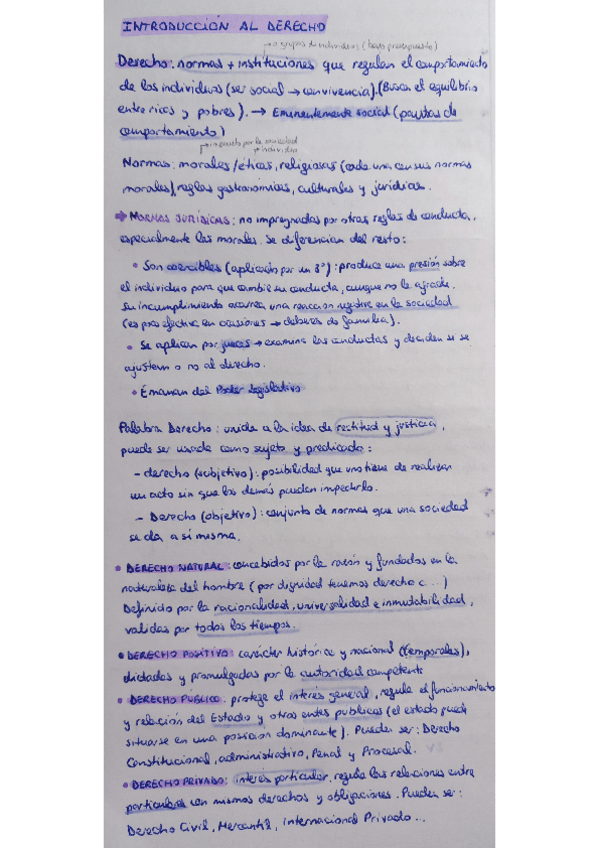 INTRODUCCIÓN AL DERECHO
→ a grupos de individuos (texto presupuesto)
Derecho: normas + instituciones que regulan el comportamiento
de los individuos (ser social → convivencia). (Buscan el equilibrio
entre ricos y pobres). → Eminentemente social (pautas de
comportamiento)
→ impuesto por la sociedad
→ individuo
Normas: morales/éticas, religiosas (cada una con sus normas
morales), reglas gastronómicas, culturales y jurídicas.
→ NORMAS JURÍDICAS: no impregnadas por otras reglas de conducta,
especialmente las morales. Se diferencian del resto:
• Son coercibles (aplicado por un 3º): produce una presión sobre
el individuo para que cambie su conducta, aunque no le agrade.
Su incumplimiento acarrea una reacción negativa en la sociedad
(es poco efectiva en ocasiones → deberes de familia).
• Se aplican por jueces → examina las conductas y deciden si se
ajustaron o no al derecho.
• Emanan del Poder Legislativo
Palabra Derecho: unida a la idea de rectitud y justicia,
puede ser usada como sujeto y predicado:
- derecho (subjetivo): posibilidad que uno tiene de realizar
un acto sin que los demás puedan impedirlo.
- Derecho (objetivo): conjunto de normas que una sociedad
se da a sí misma.
• DERECHO NATURAL: concebidos por la razón y fundados en la
naturaleza del hombre (por dignidad tenemos derecho a...)
Definido por la racionalidad, universalidad e inmutabilidad,
validas por todos los tiempos.
• DERECHO POSITIVO: carácter histórico y nacional (temporales),
dictados y promulgados por la autoridad competente
• DERECHO PÚBLICO: protege el interés general, regula el funcionamiento
y relación del Estado y otros entes públicos (el estado puede
situarse en una posición dominante). Pueden ser: Derecho
Constitucional, administrativo, Penal y Procesal.
• DERECHO PRIVADO: interés particular, regula las relaciones entre
particulares con mismos derechos y obligaciones. Pueden ser:
Derecho Civil, Mercantil, Internacional Privado...